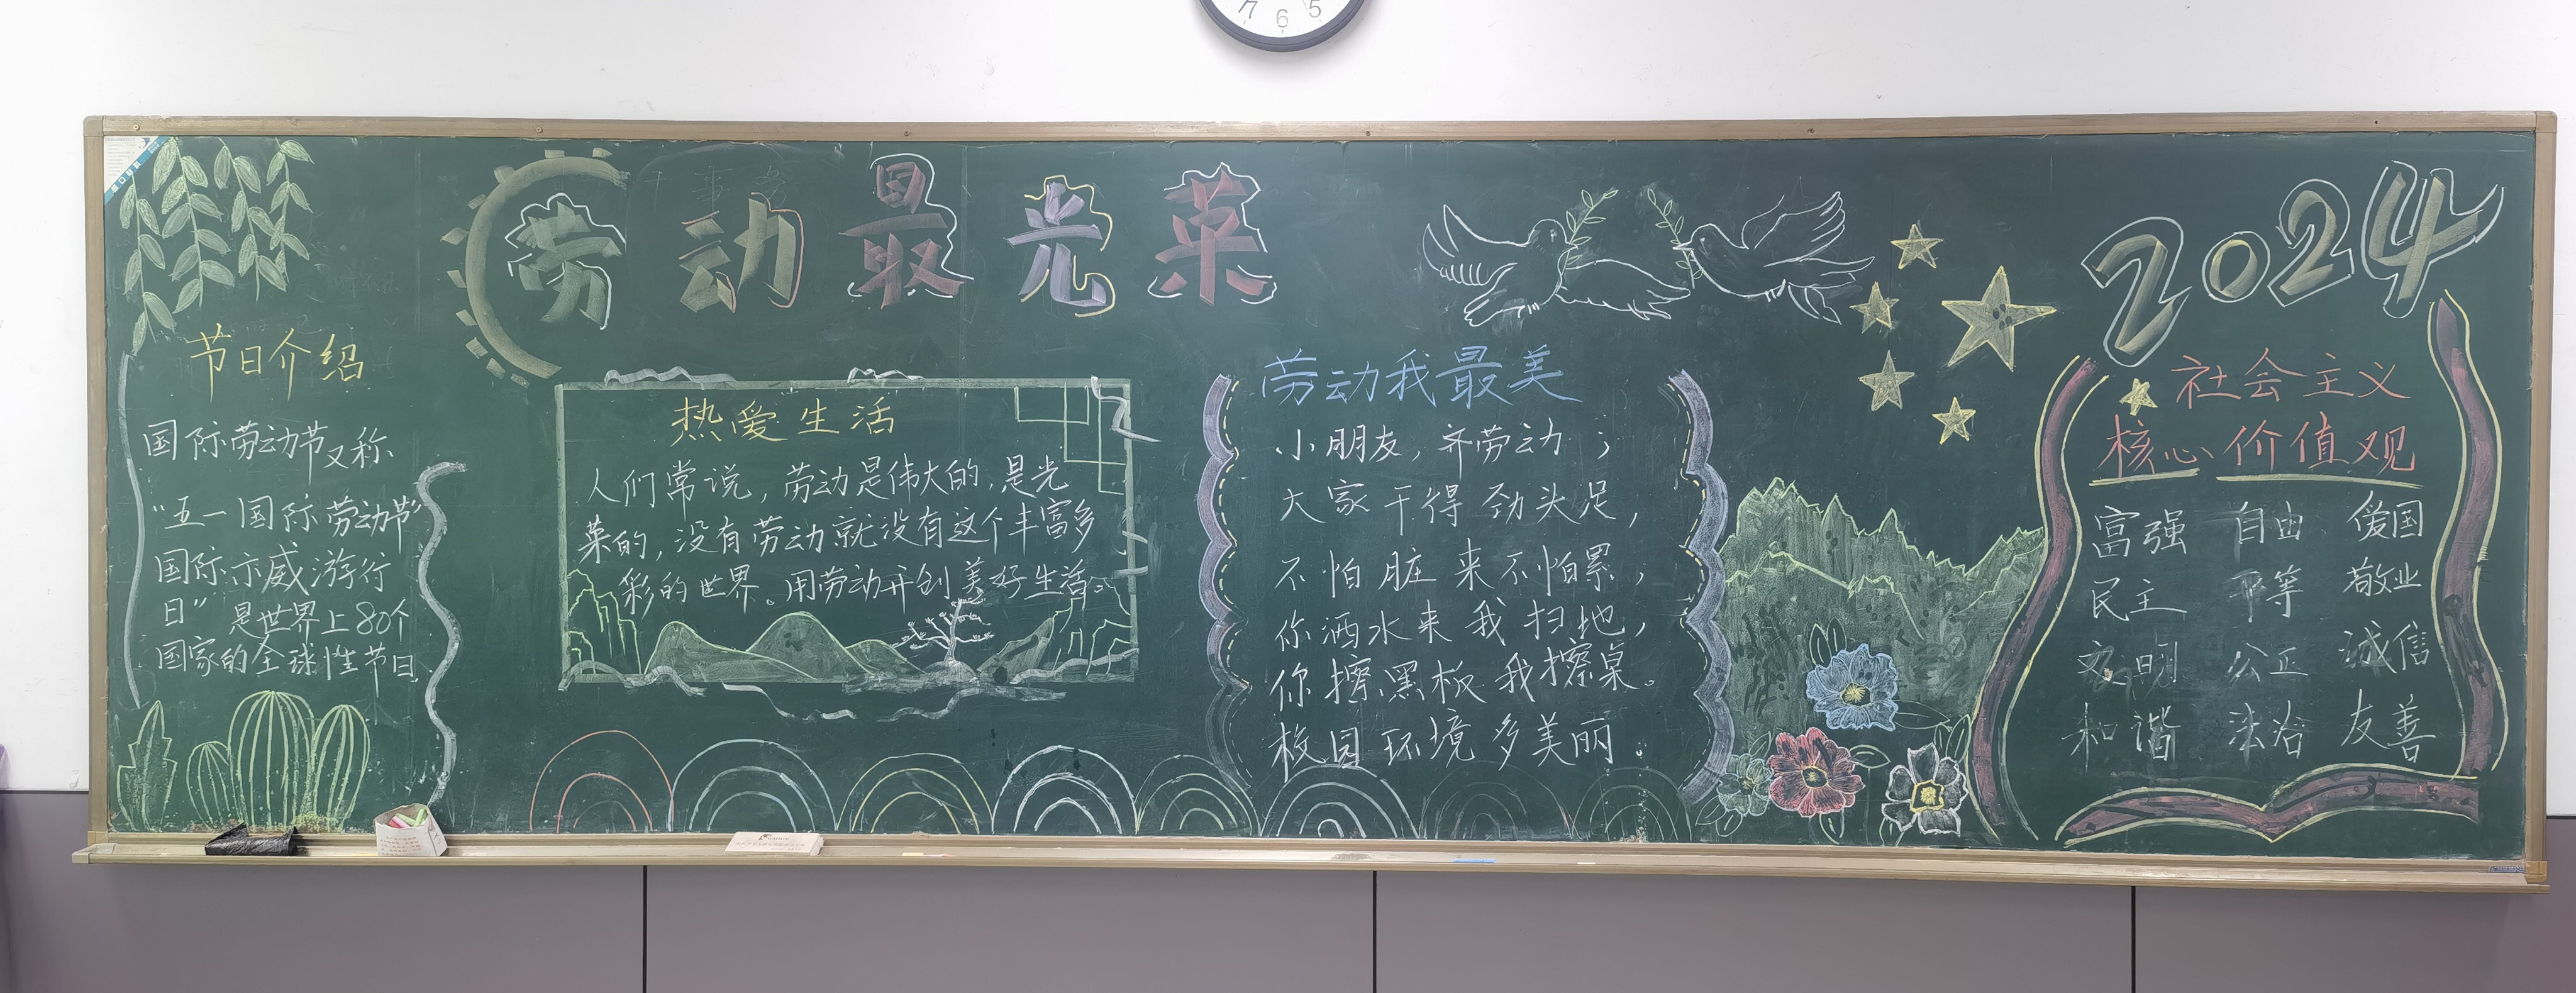 劳动最光荣
2024
节日介绍
国际劳动节又称
“五一国际劳动节”
国际示威游行
日”是世界上80个
国家的全球性节日
热爱生活
人们常说，劳动是伟大的，是光
荣的，没有劳动就没有这个丰富多
彩的世界。用劳动开创美好生活。
劳动我最美
小朋友，齐劳动；
大家干得劲头足，
不怕脏来不怕累，
你洒水来我扫地，
你擦黑板我擦桌。
校园环境多美丽。
社会主义
核心价值观
富强 自由 爱国
民主 平等 敬业
文明 公正 诚信
和谐 法治 友善
7 6 5